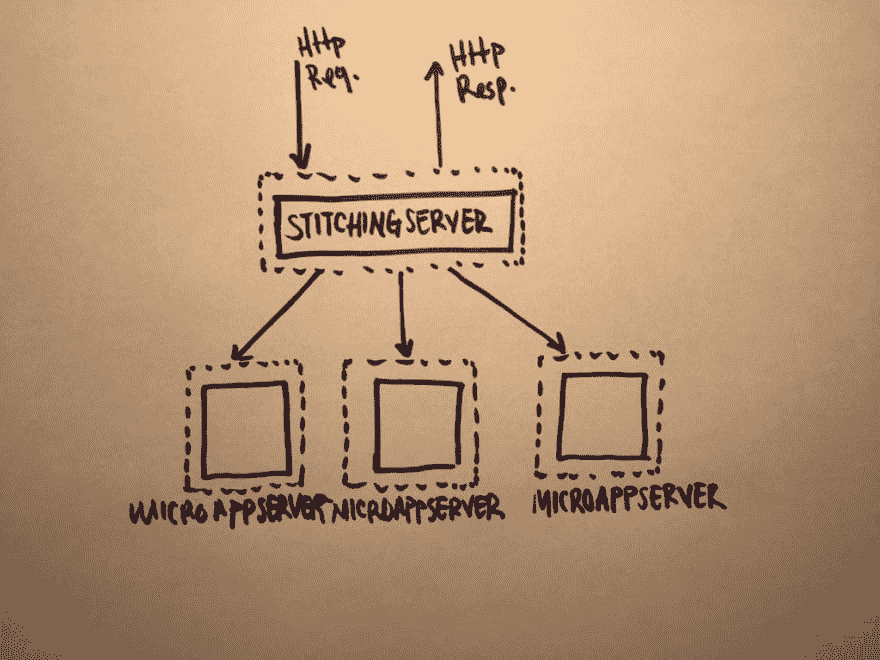 HTTP
Req.
HTTP
Resp.
STITCHING SERVER
MICRO APPSERVER
MICROAPPSERVER
MICROAPPSERVER